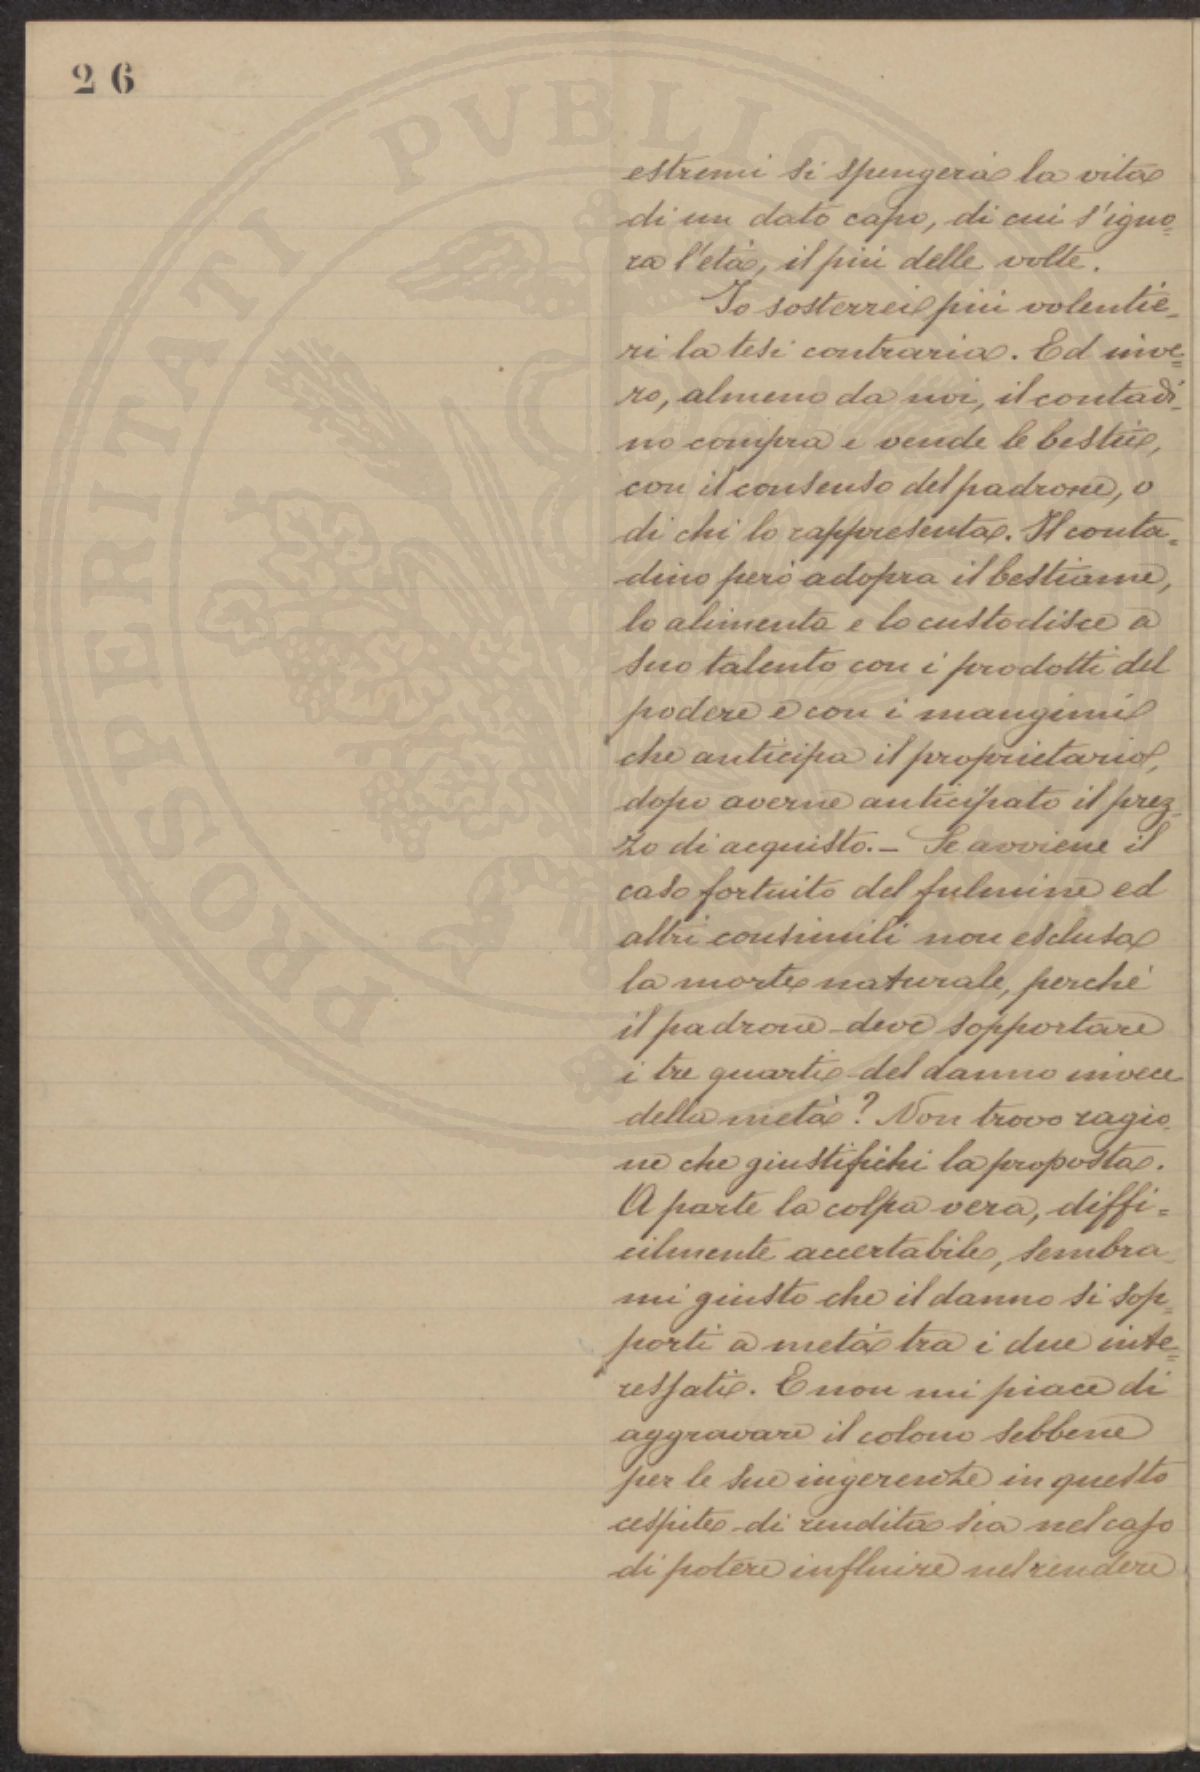 26
PROSPERITATI PUBLICAE
estremi si spengerà la vita
di un dato capo, di cui s'igno=
ra l'età, il più delle volte.
Io sosterrei più volentie=
ri la tesi contraria. Ed inve=
ro, almeno da noi, il contadi=
no compra e vende le bestie,
con il consenso del padrone, o
di chi lo rappresenta. Il conta=
dino però adopra il bestiame,
lo alimenta e lo custodisce a
suo talento con i prodotti del
podere e con i mangimi
che anticipa il proprietario,
dopo averne anticipato il prez=
zo di acquisto. - Se avviene il
caso fortuito del fulmine ed
altri consimili non esclusa
la morte naturale, perchè
il padrone deve sopportare
i tre quarti del danno invece
della metà? Non trovo ragio=
ne che giustifichi la proposta.
A parte la colpa vera, diffi=
cilmente accertabile, sembra
mi giusto che il danno si sop=
porti a metà tra i due inte=
ressati. E non mi piace di
aggravare il colono sebbene
per le sue ingerenze in questo
cespite di rendita sia nel caso
di potere influire nel rendere